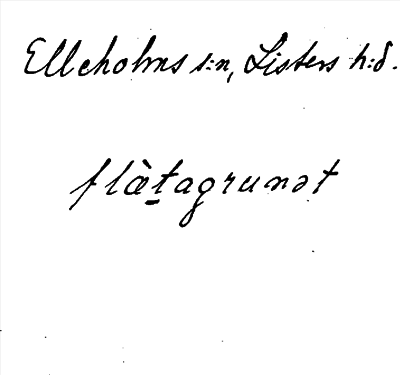 Elleholms s:n, Listers h:d.
flæ̀ṯagrunət